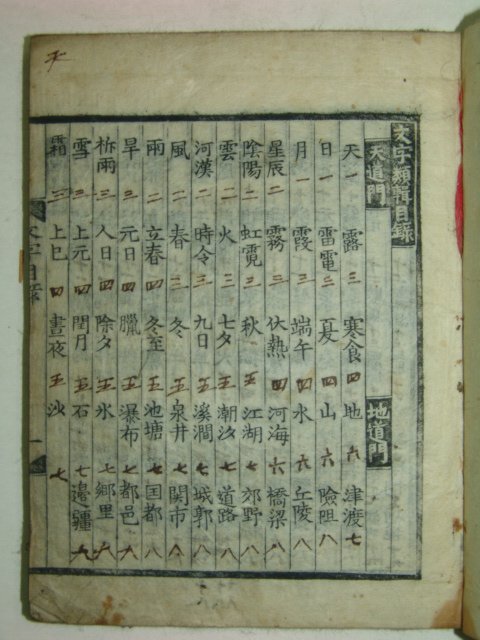 文字類輯目錄
天道門 地道門
天 一 露 三 寒食 四 地 六 津渡 七
日 一 雷電 三 夏 四 山 六 險阻 八
月 一 霞 三 端午 四 水 六 丘陵 八
星辰 一 霧 三 伏熱 四 河海 六 橋梁 八
陰陽 二 虹霓 三 秋 五 江湖 七 郊野 八
雲 二 火 三 七夕 五 潮汐 七 道路 八
河漢 二 時令 三 九日 五 溪澗 七 城郭 八
風 二 春 三 冬 五 泉井 七 関市 八
雨 二 立春 四 冬至 五 池塘 七 囯都 八
旱 三 元日 四 臘 五 瀑布 七 都邑
祈雨 三 人日 四 除夕 五 氷 七 鄉里
雪 三 上元 四 閏月 五 石 七 邊疆
霜 三 上巳 四 晝夜 五 沙 七
文字目錄 一